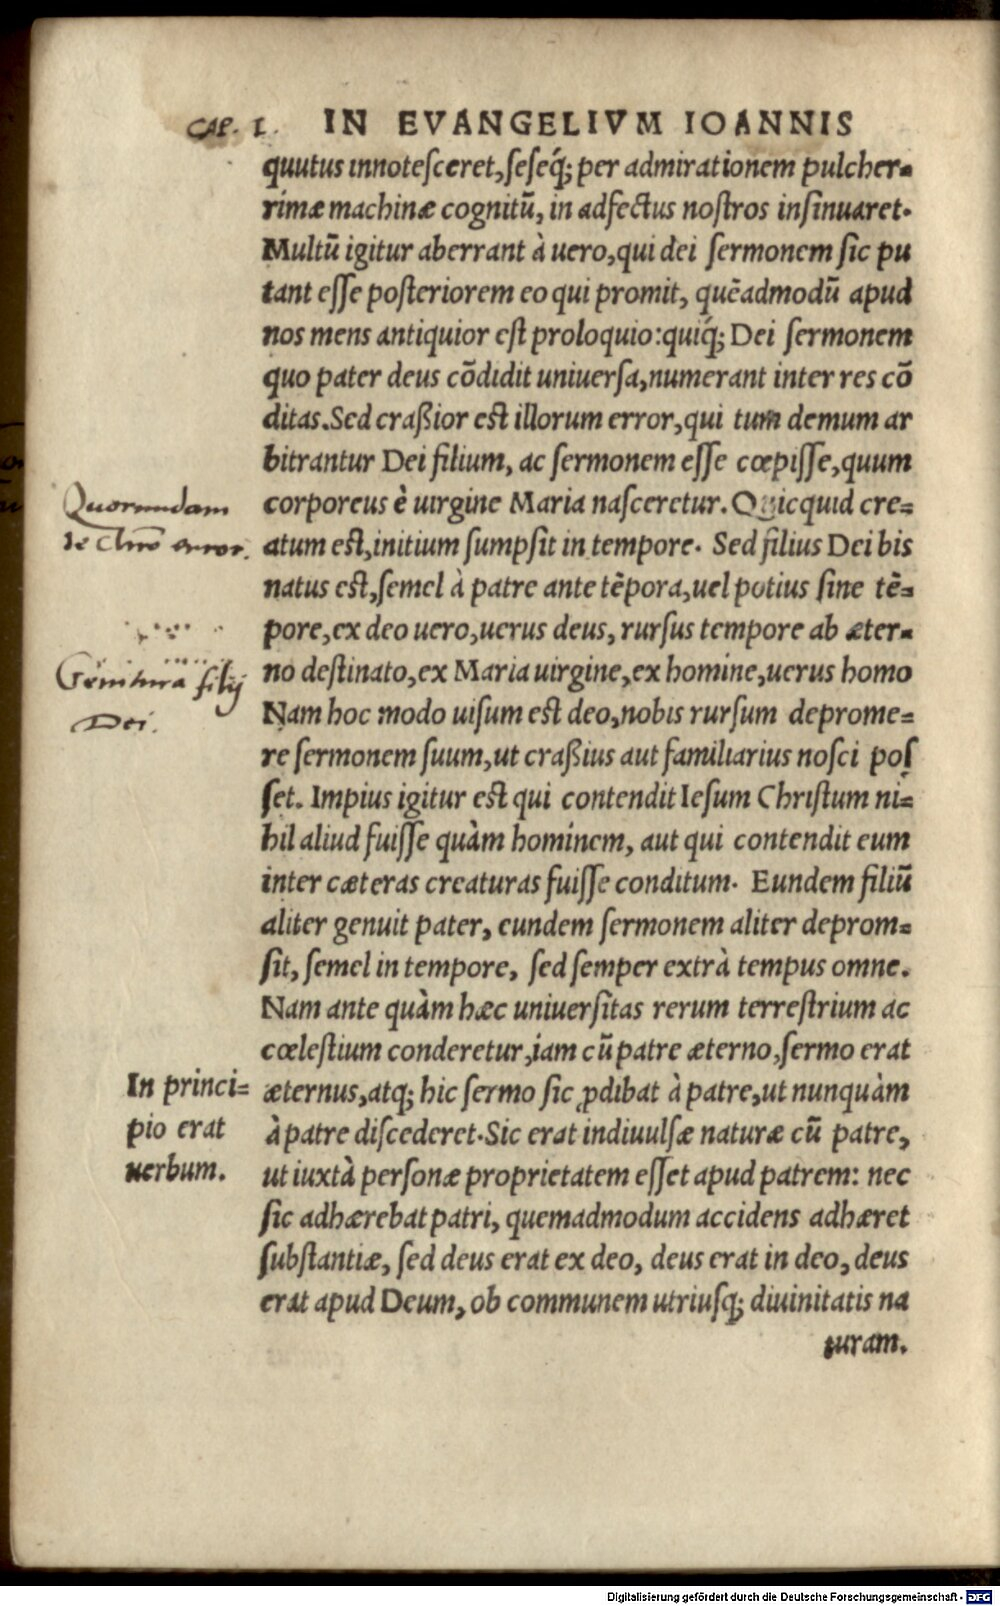 CAP. I. IN EVANGELIVM IOANNIS
quutus innotesceret, seseq́; per admirationem pulcher=
rimæ machinæ cognitū, in adfectus nostros insinuaret.
Multū igitur aberrant à uero, qui dei sermonem sic pu
tant esse posteriorem eo qui promit, quēadmodū apud
nos mens antiquior est proloquio: quiq́; Dei sermonem
quo pater deus cōdidit uniuersa, numerant inter res cō
ditas. Sed craßior est illorum error, qui tum demum ar
bitrantur Dei filium, ac sermonem esse cœpisse, quum
corporeus è uirgine Maria nasceretur. Quicquid cre=
atum est, initium sumpsit in tempore. Sed filius Dei bis
natus est, semel à patre ante tēpora, uel potius sine tē=
pore, ex deo uero, uerus deus, rursus tempore ab æter=
no destinato, ex Maria uirgine, ex homine, uerus homo
Nam hoc modo uisum est deo, nobis rursum deprome=
re sermonem suum, ut craßius aut familiarius nosci pos
set. Impius igitur est qui contendit Iesum Christum ni=
hil aliud fuisse quàm hominem, aut qui contendit eum
inter cæteras creaturas fuisse conditum. Eundem filiū
aliter genuit pater, eundem sermonem aliter deprom=
sit, semel in tempore, sed semper extrà tempus omne.
Nam ante quàm hæc uniuersitas rerum terrestrium ac
cœlestium conderetur, iam cū patre æterno, sermo erat
æternus, atq; hic sermo sic ꝓdibat à patre, ut nunquàm
à patre discederet. Sic erat indiuulsæ naturæ cū patre,
ut iuxtà personæ proprietatem esset apud patrem: nec
sic adhærebat patri, quemadmodum accidens adhæret
substantiæ, sed deus erat ex deo, deus erat in deo, deus
erat apud Deum, ob communem utriusq; diuinitatis na
turam.
Quorundam
de Chrō error.
Genitura filij
Dei.
In princi=
pio erat
uerbum.
Digitalisierung gefördert durch die Deutsche Forschungsgemeinschaft - DFG